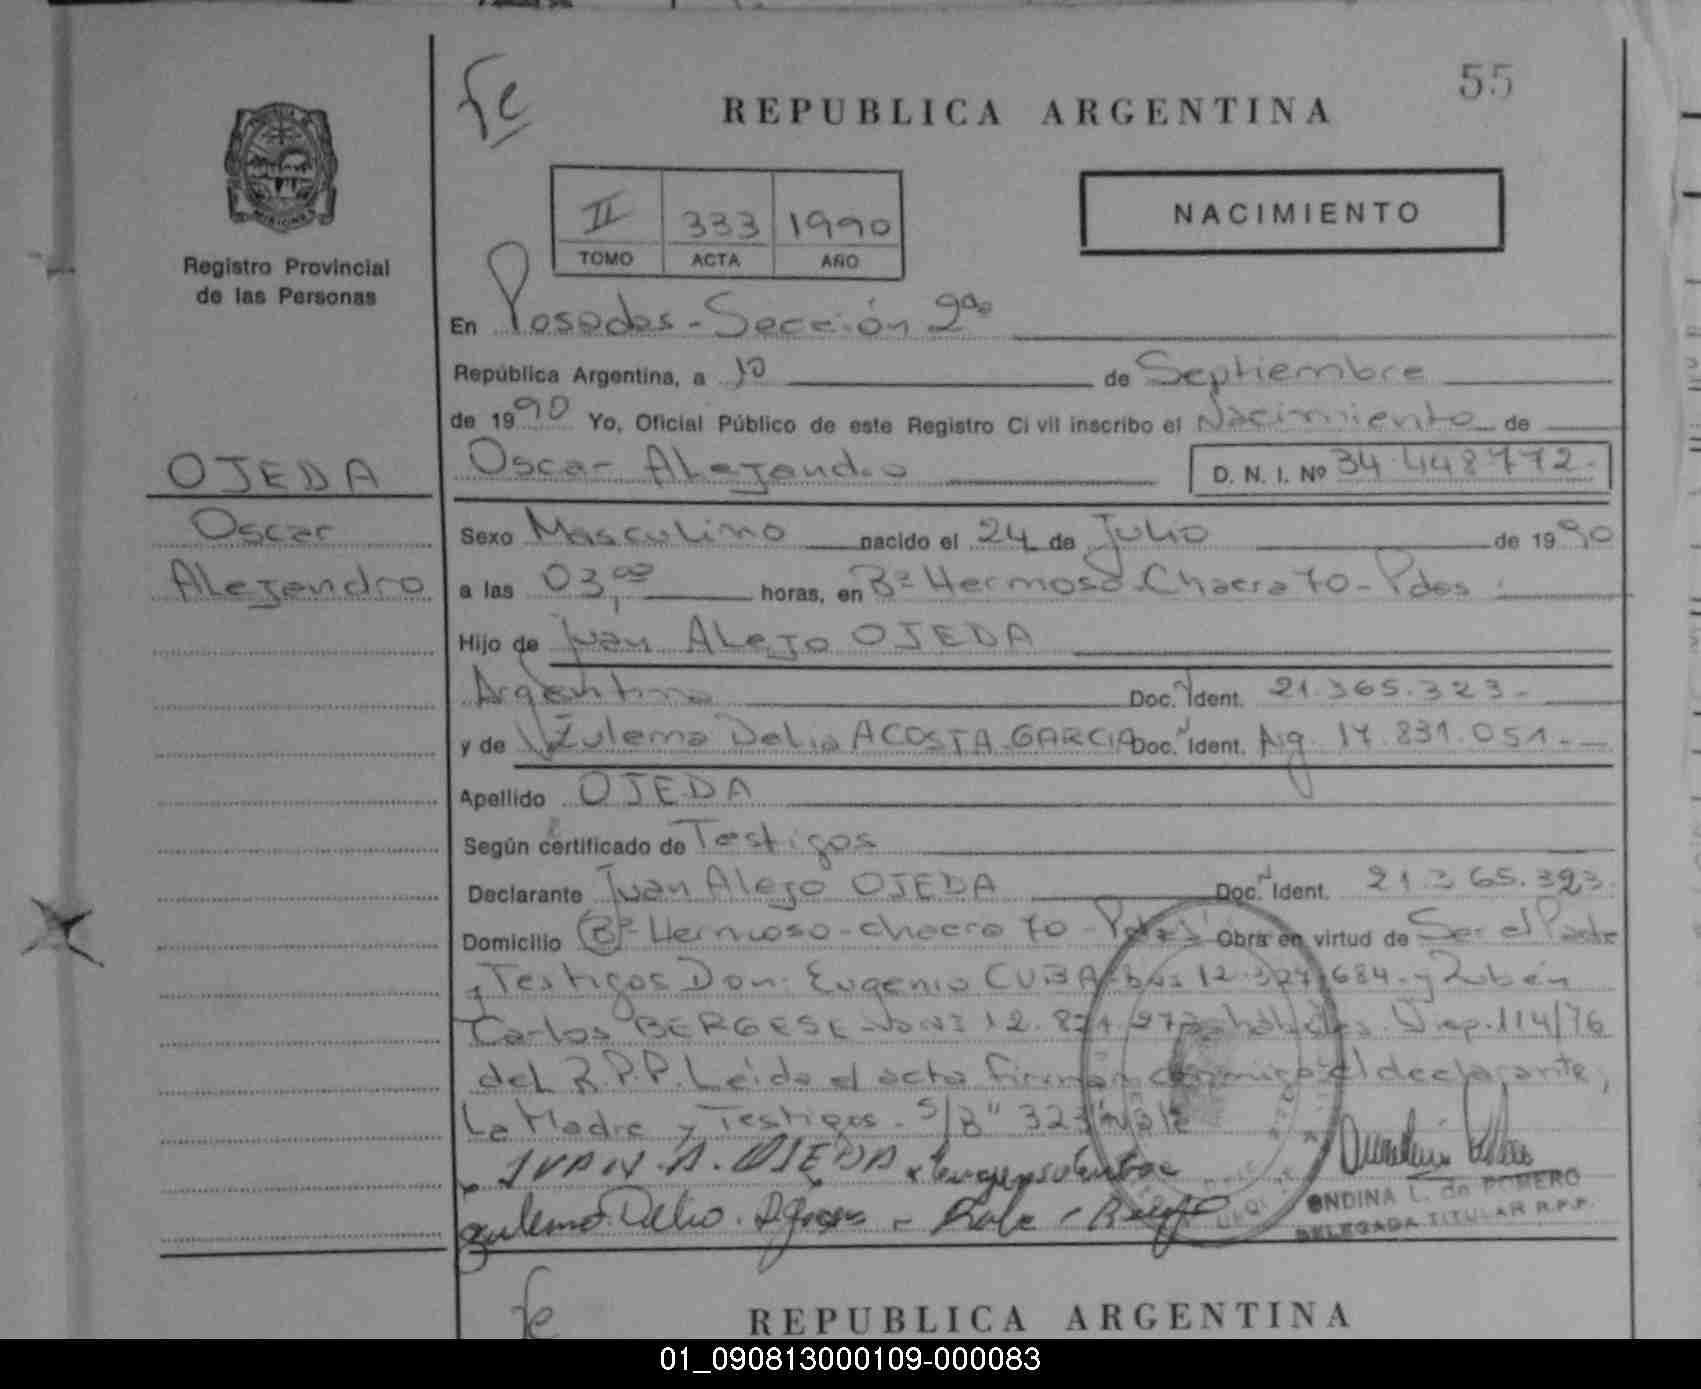 55
fe
REPUBLICA ARGENTINA
II 333 1990
TOMO ACTA AÑO
NACIMIENTO
MISIONES
Registro Provincial
de las Personas
En Posadas - Sección 2da
República Argentina, a 10 de Septiembre
de 1990 Yo, Oficial Público de este Registro Civil inscribo el Nacimiento de
Oscar Alejandro D. N. I. Nº 34.448.772.
OJEDA
Oscar
Alejandro
Sexo Masculino nacido el 24 de Julio de 1990
a las 03,00 horas, en Bº Hermoso - Chacra 70 - Pdas
Hijo de Juan Alejo OJEDA
Argentino Doc. Ident. 21.365.323.-
y de Zulema Delia ACOSTA GARCIA Doc. Ident. Ag. 17.831.051.-
Apellido OJEDA
Según certificado de Testigos
Declarante Juan Alejo OJEDA Doc. Ident. 21.365.323.
Domicilio Bº Hermoso - chacra 70 - Pdas Obra en virtud de Ser el Padre
y Testigos Don: Eugenio CUBA 12.327.684.- y Rubén
Carlos BERGESE 12. hábiles Disp. 114/76
del R.P.P. Leida el acta firman conmigo el declarante,
La Madre y Testigos. S/B" 323 "vale
JUAN. A. OJEDA
Zulema Delia
ONDINA L. de ROMERO
DELEGADA TITULAR R.P.P.
fe
REPUBLICA ARGENTINA
01_090813000109-000083